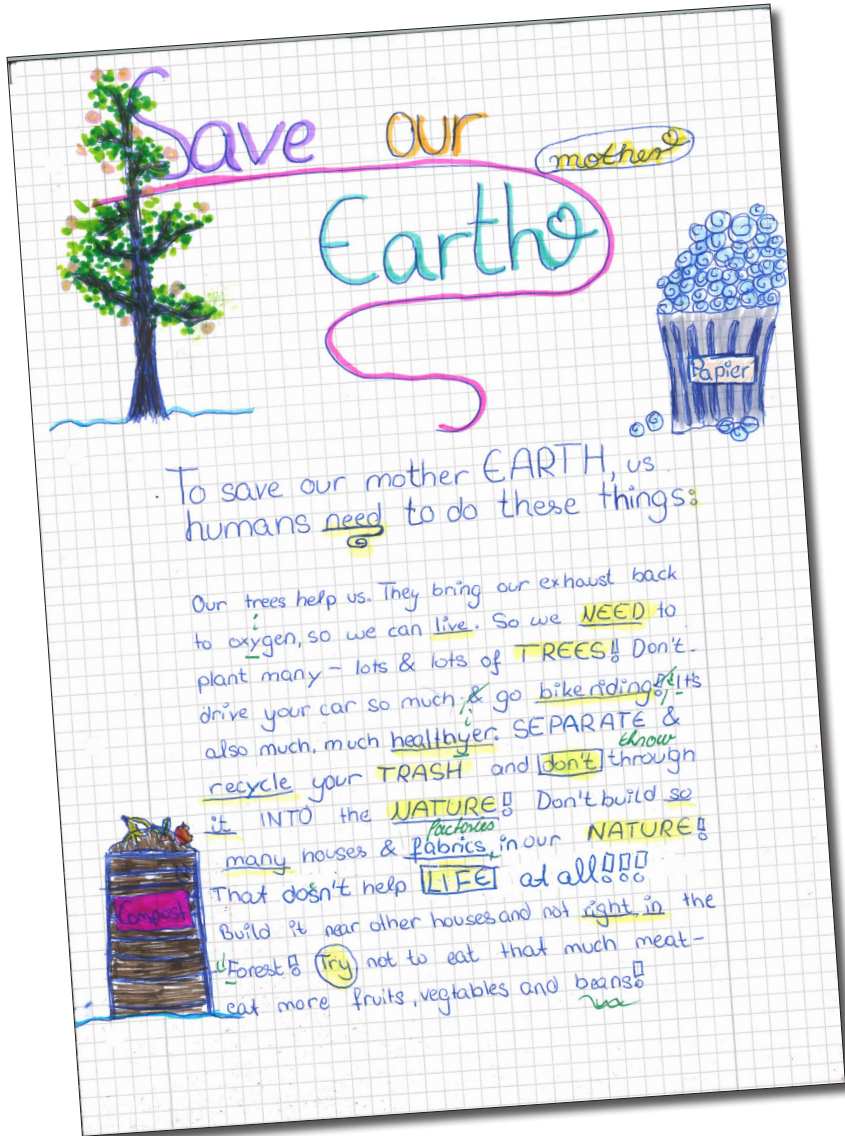 Save our mother
Earth
Papier
To save our mother EARTH, us
humans need to do these things:
Our trees help us. They bring our exhaust back
to oxygen, so we can live. So we NEED to
plant many - lots & lots of TREES! Don't
drive your car so much, & go bike riding! It's
also much, much healthyer. SEPARATE &
throw
recycle your TRASH and don't through
it INTO the NATURE! Don't build so
factories
many houses & fabrics, in our NATURE!
That dosn't help LIFE at all!!!
Compost
Build it near other houses and not right in the
Forest! Try not to eat that much meat-
eat more fruits, vegtables and beans!